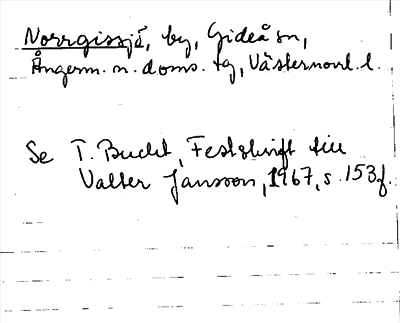 Norrgissjö, by, Gideå sn,
Ångerm. n. doms. tg, Västernorrl. l.
Se T. Bucht, Festskrift till
Valter Jansson, 1967, s. 153 f.